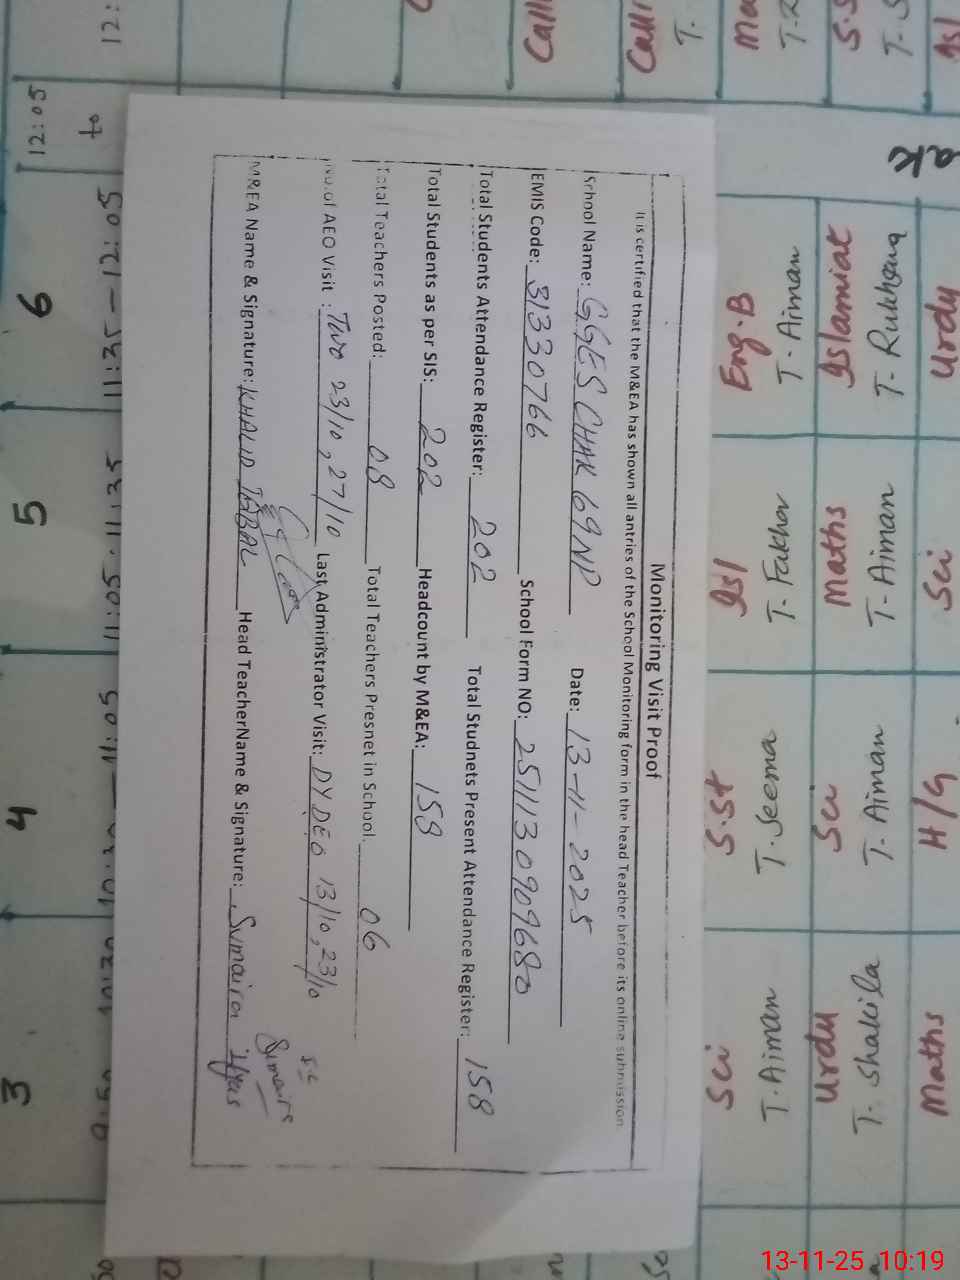 Monitoring Visit Proof
It is certified that the M&EA has shown all antries of the School Monitoring form in the head Teacher before its online submission
School Name: GGES CHAK 69NP Date: 13-11-2025
EMIS Code: 31330766 School Form NO: 251113090968​0
Total Students Attendance Register: 202 Total Studnets Present Attendance Register: 158
Total Students as per SIS: 202 Headcount by M&EA: 158
Total Teachers Posted: 08 Total Teachers Presnet in School. 06
No.of AEO Visit : Two 23/10, 27/10 Last Administrator Visit: DYDEO 13/10, 23/10
M&EA Name & Signature: KHALID IQBAL Head TeacherName & Signature: Sumaira ilyas
3 4 5 6
10:20 11:05 11:05 - 11:35 11:35 - 12:05 12:05 to
Sci S.St Isl Eng.B
T. Aiman T. Seema T. Fakhar T. Aiman
Urdu Sci Maths Islamiat
T. Shakila T. Aiman T. Aiman T. Rukhsana
Maths H/G Sci Urdu
13-11-25 10:19